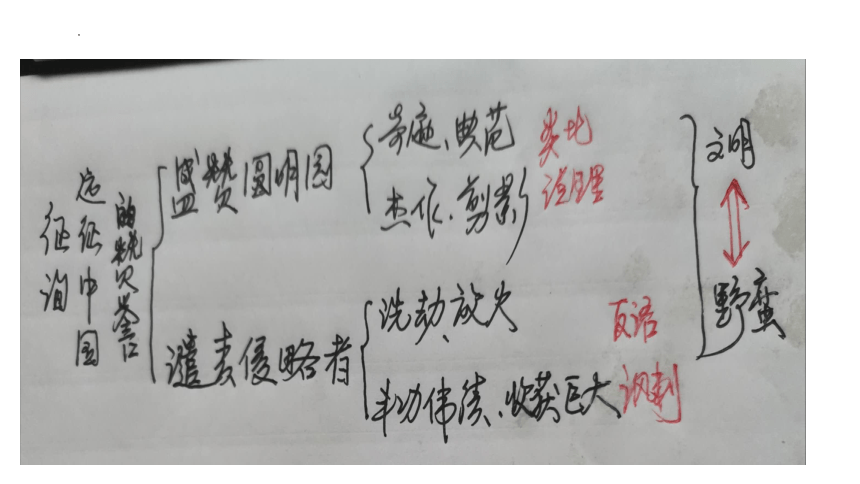 征询
远征中国
的赞誉
盛赞圆明园
奇迹、典范
杰作、剪影
类比
说理
谴责侵略者
洗劫、放火
丰功伟绩、收获巨大
反语
讽刺
文明
野蛮